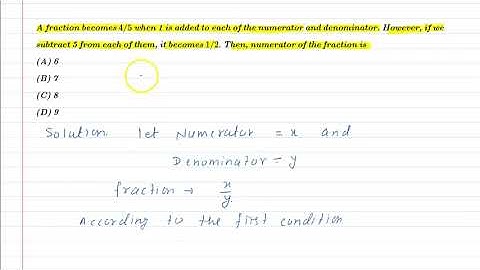 A fraction becomes 4/5 when 1 is added to each of the numerator and denominator. However, if we
subtract 5 from each of them, it becomes 1/2. Then, numerator of the fraction is
(A) 6
(B) 7
(C) 8
(D) 9
Solution let Numerator = x and
Denominator = y
fraction → x/y
According to the first condition